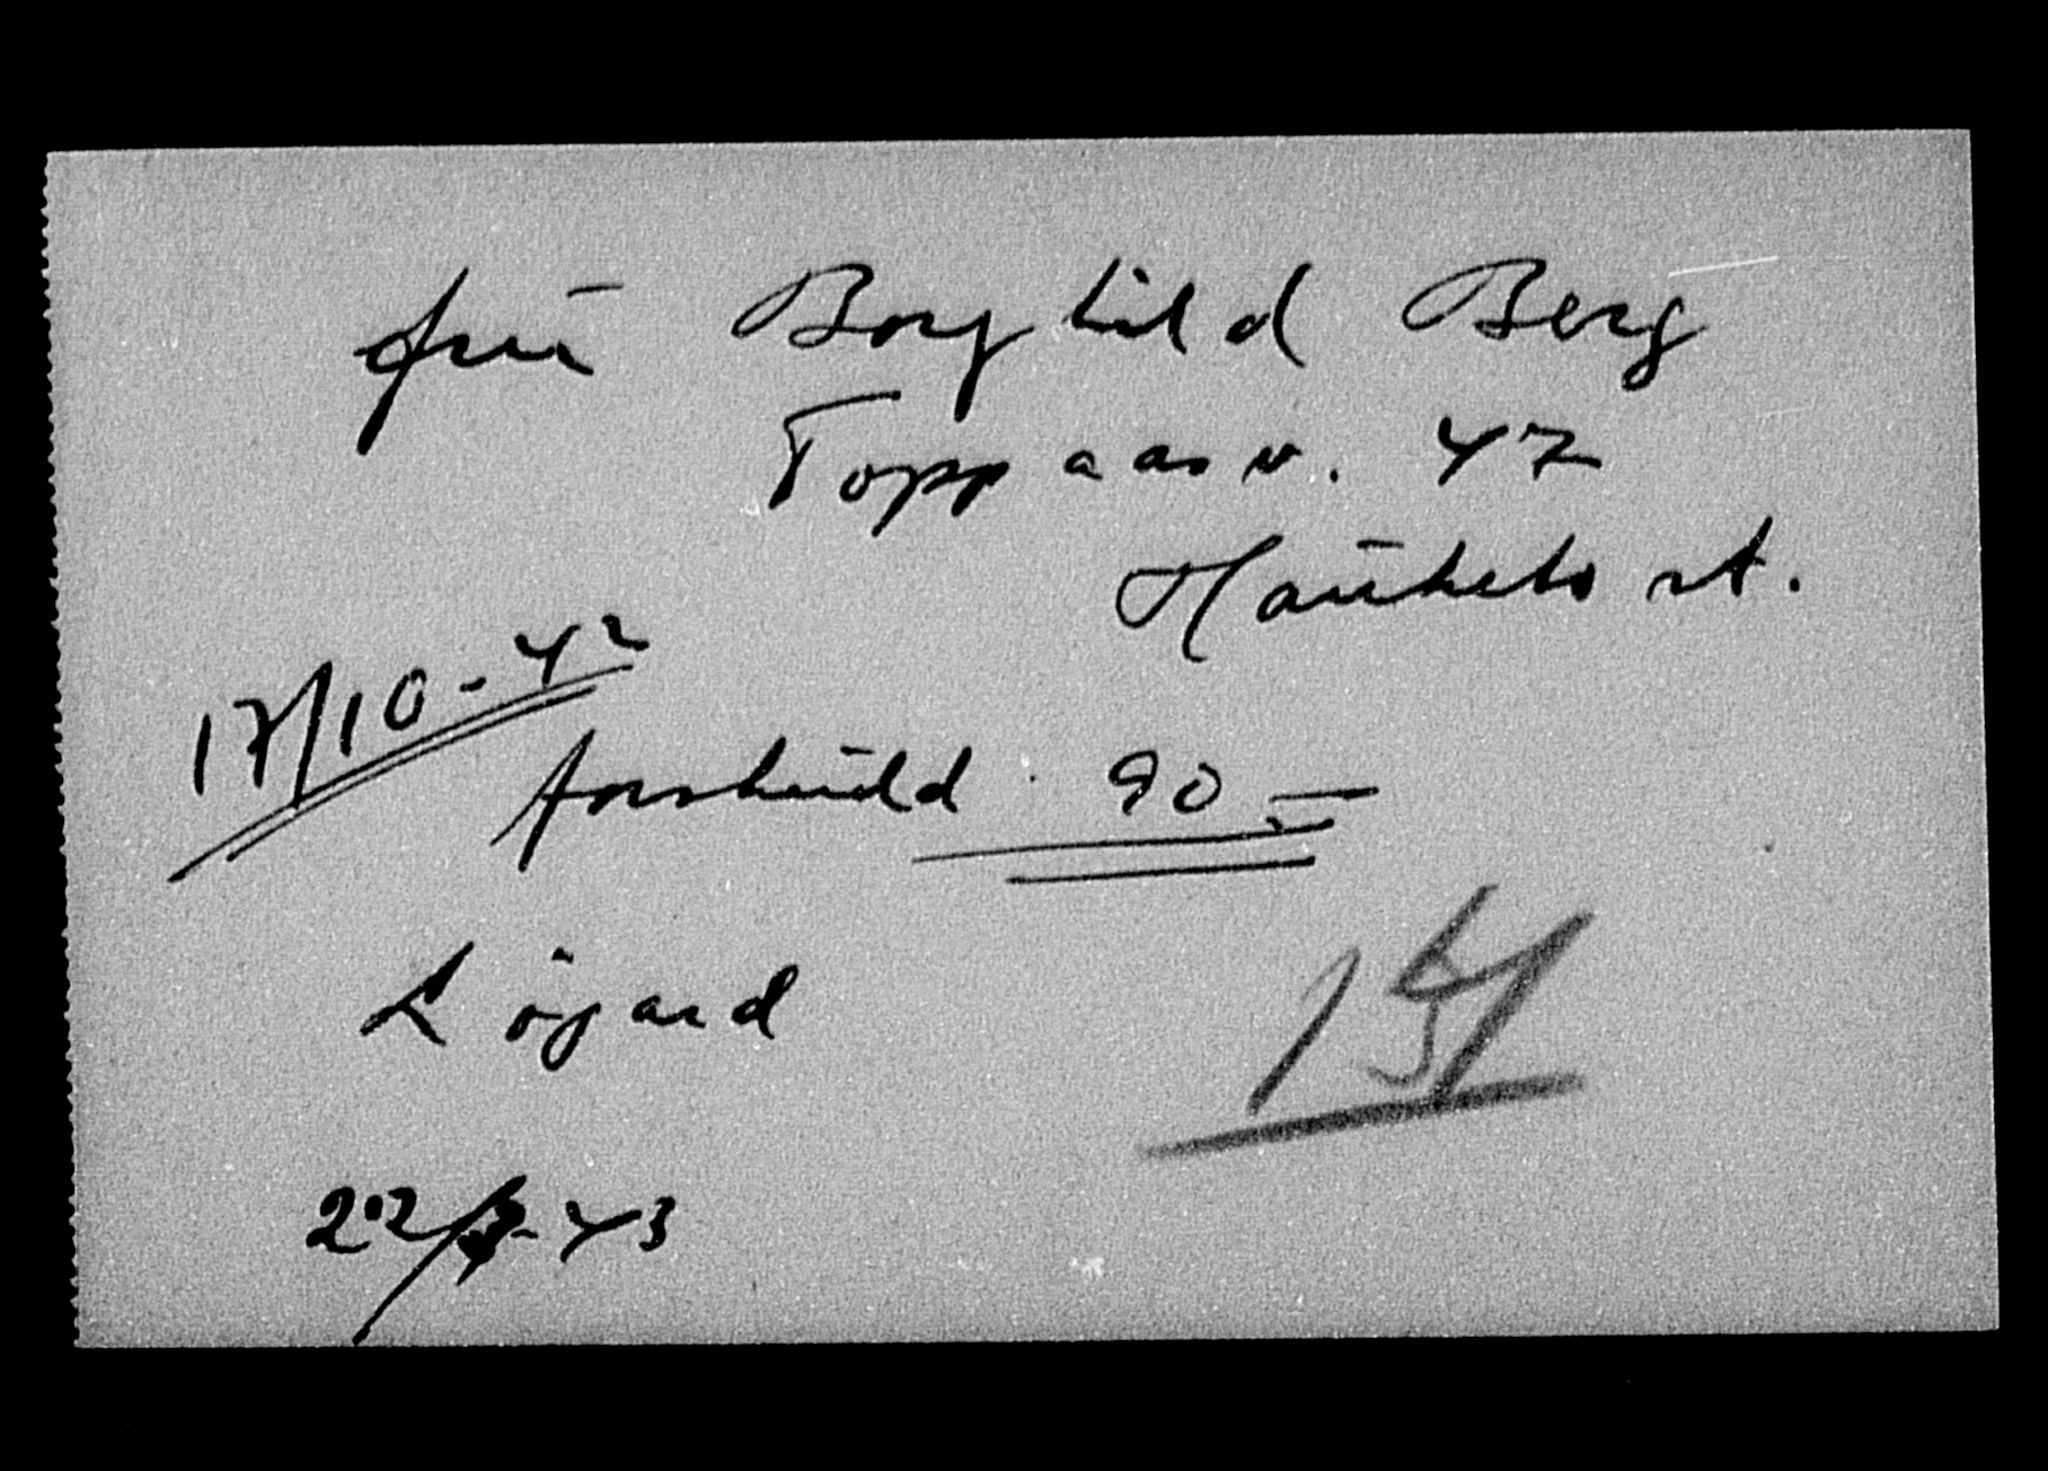 fru Borghild Berg
Toppaasv. 47
Hauketo st.
17/10-42
forskudd 90.—
Løgard
22/3-43